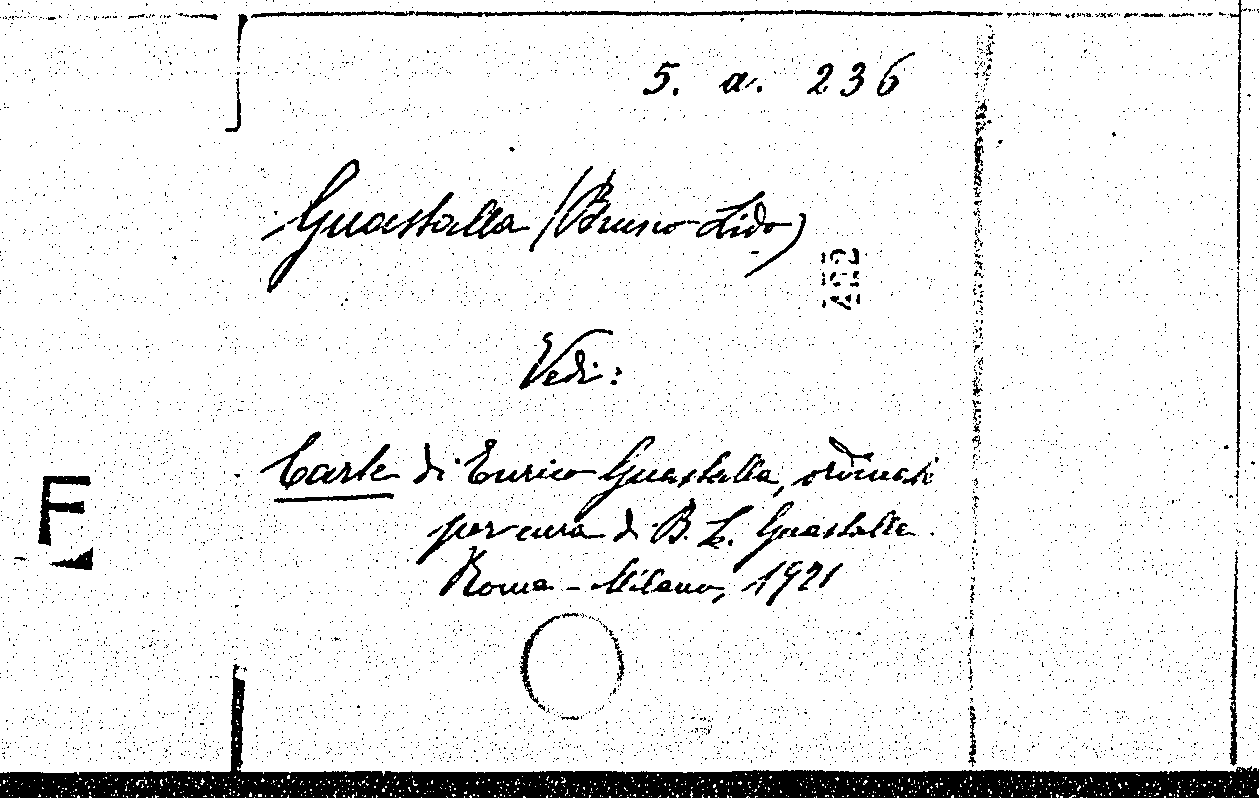 5. a. 236
Guastalla (Bruno-Lido)
Vedi:
Carte di Enrico Guastalla, ordinati
per cura di B. L. Guastalla.
Roma - Milano, 1921
F